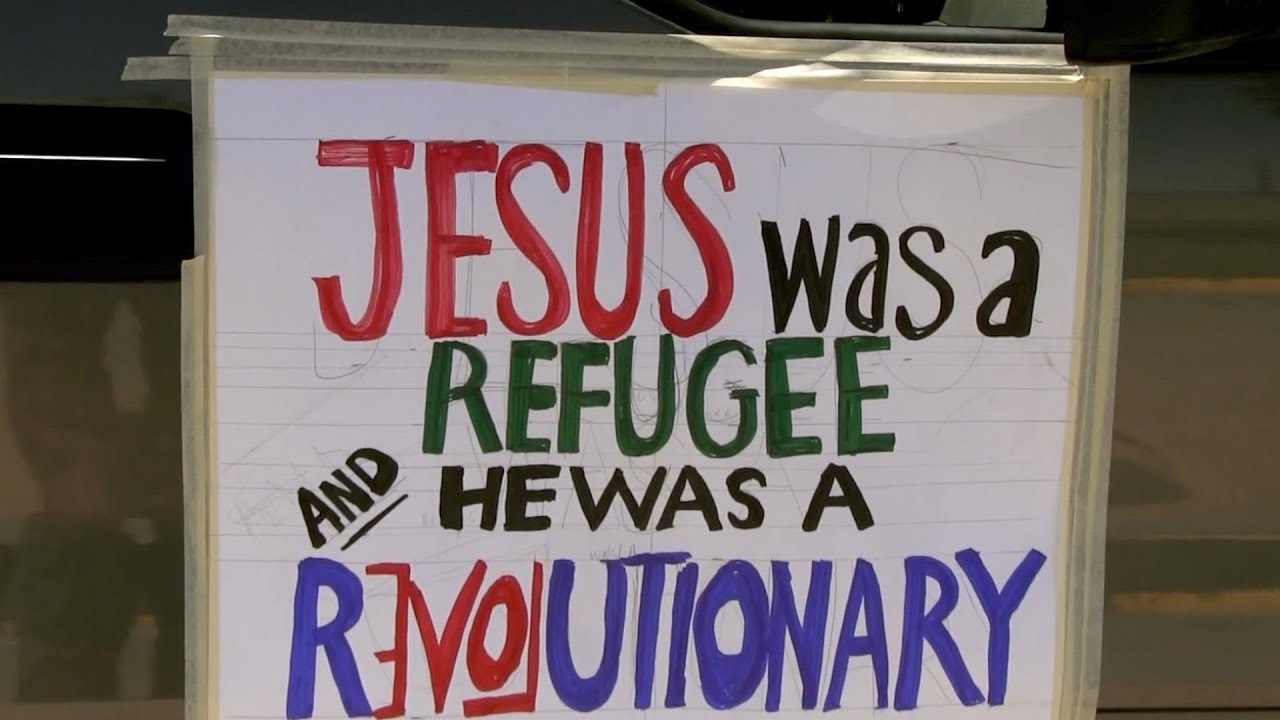 JESUS was a
REFUGEE
AND HE WAS A
REVOLUTIONARY